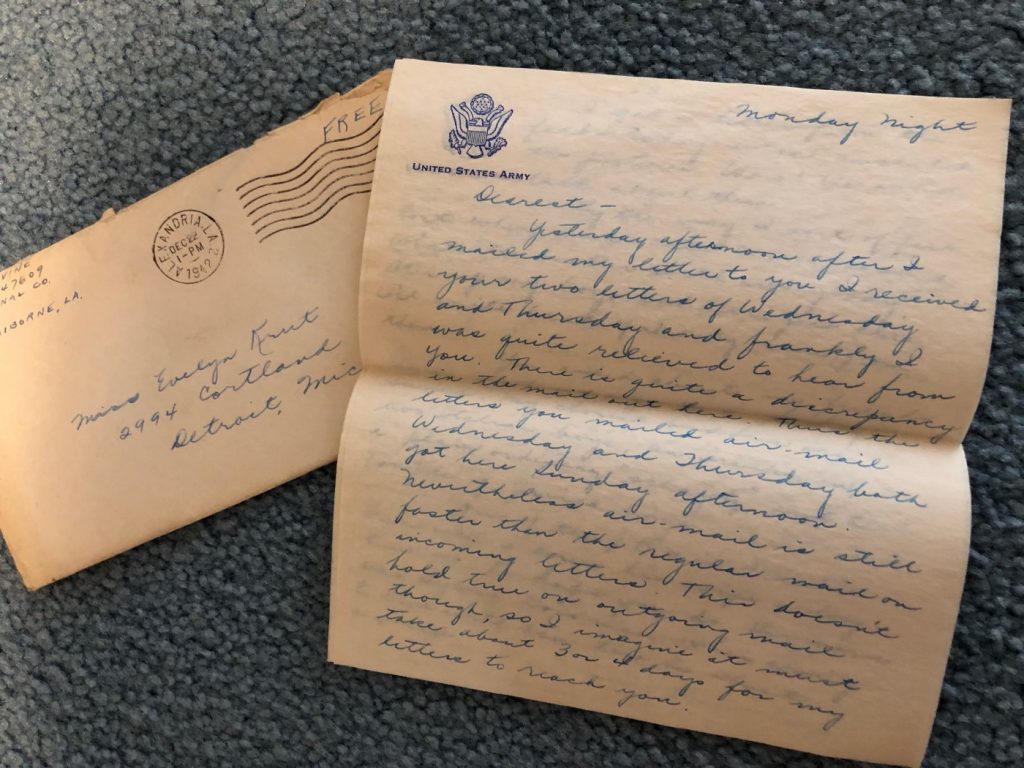 FREE
ALEXANDRIA, LA. 2
DEC 22
1-PM
1942
VINE
47609
NAL CO.
AIBORNE, LA.
Miss Evelyn Krut
2994 Cortland
Detroit, Mic
UNITED STATES ARMY
Monday Night
Dearest -
Yesterday afternoon after I
mailed my letter to you I received
your two letters of Wednesday
and Thursday and frankly I
was quite relieved to hear from
you. There is quite a discrepancy
in the mail out here. Thus the
letters you mailed air-mail
Wednesday and Thursday both
got here Sunday afternoon.
Nevertheless air-mail is still
faster then the regular mail on
incoming letters. This doesn't
hold true on outgoing mail
though, so I imagine it must
take about 3 or 4 days for my
letters to reach you.